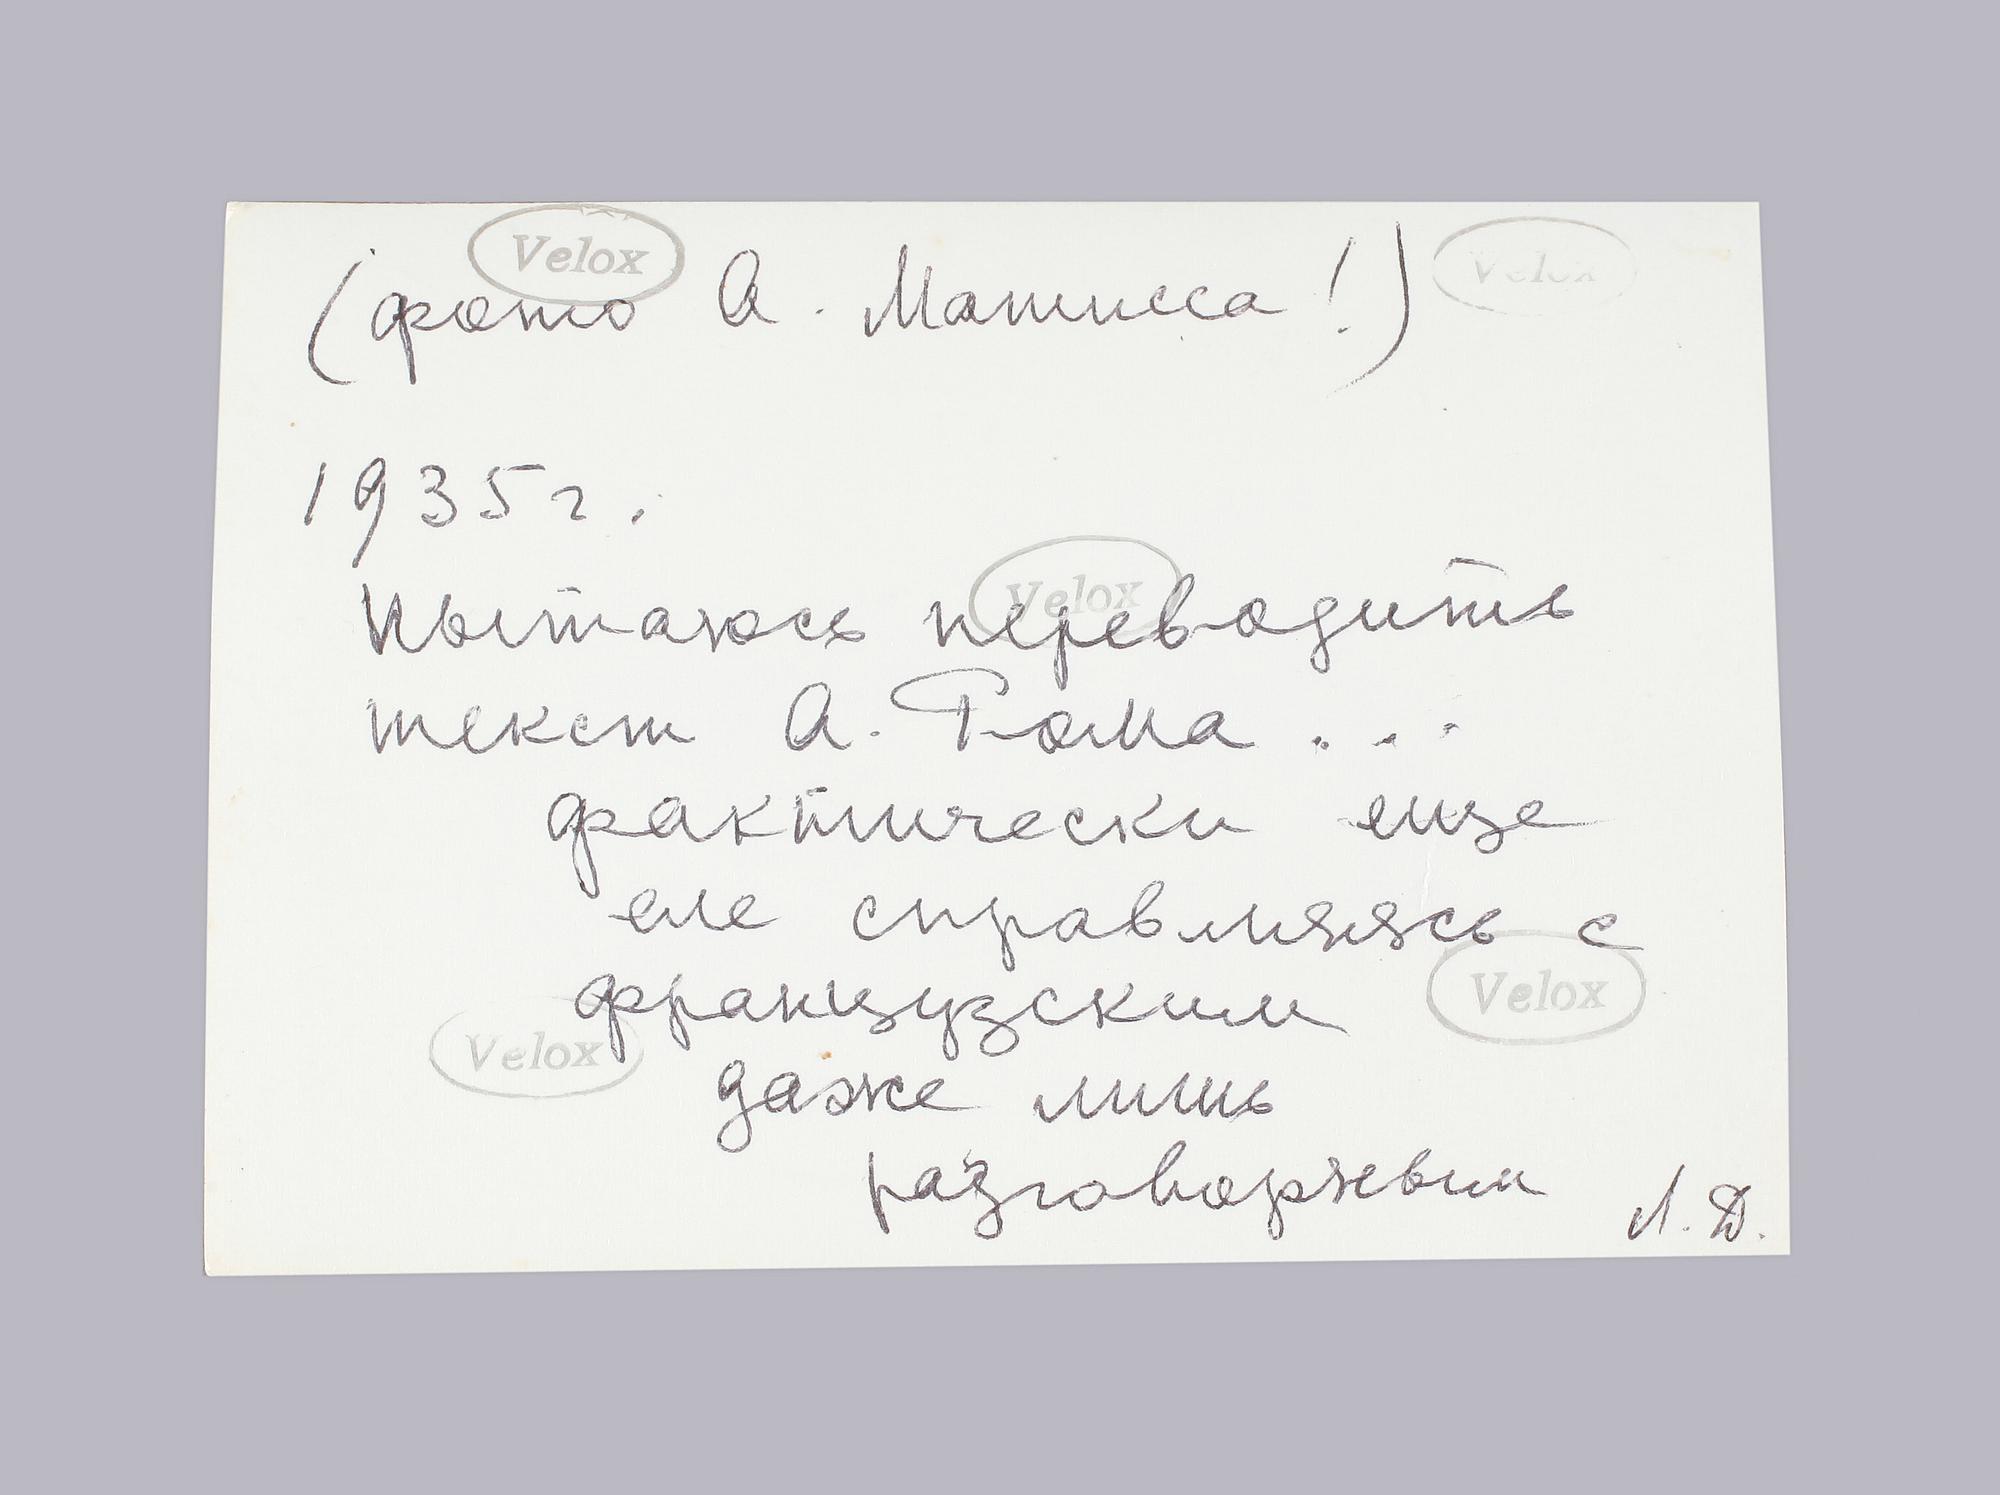 Velox
Velox
(фото А. Матисса!)
1935 г.
Velox
Пытаюсь переводить
текст А. Рома...
фактически еще
еле справляясь с
Velox
французским
Velox
даже лишь
разговорным
Л. Д.